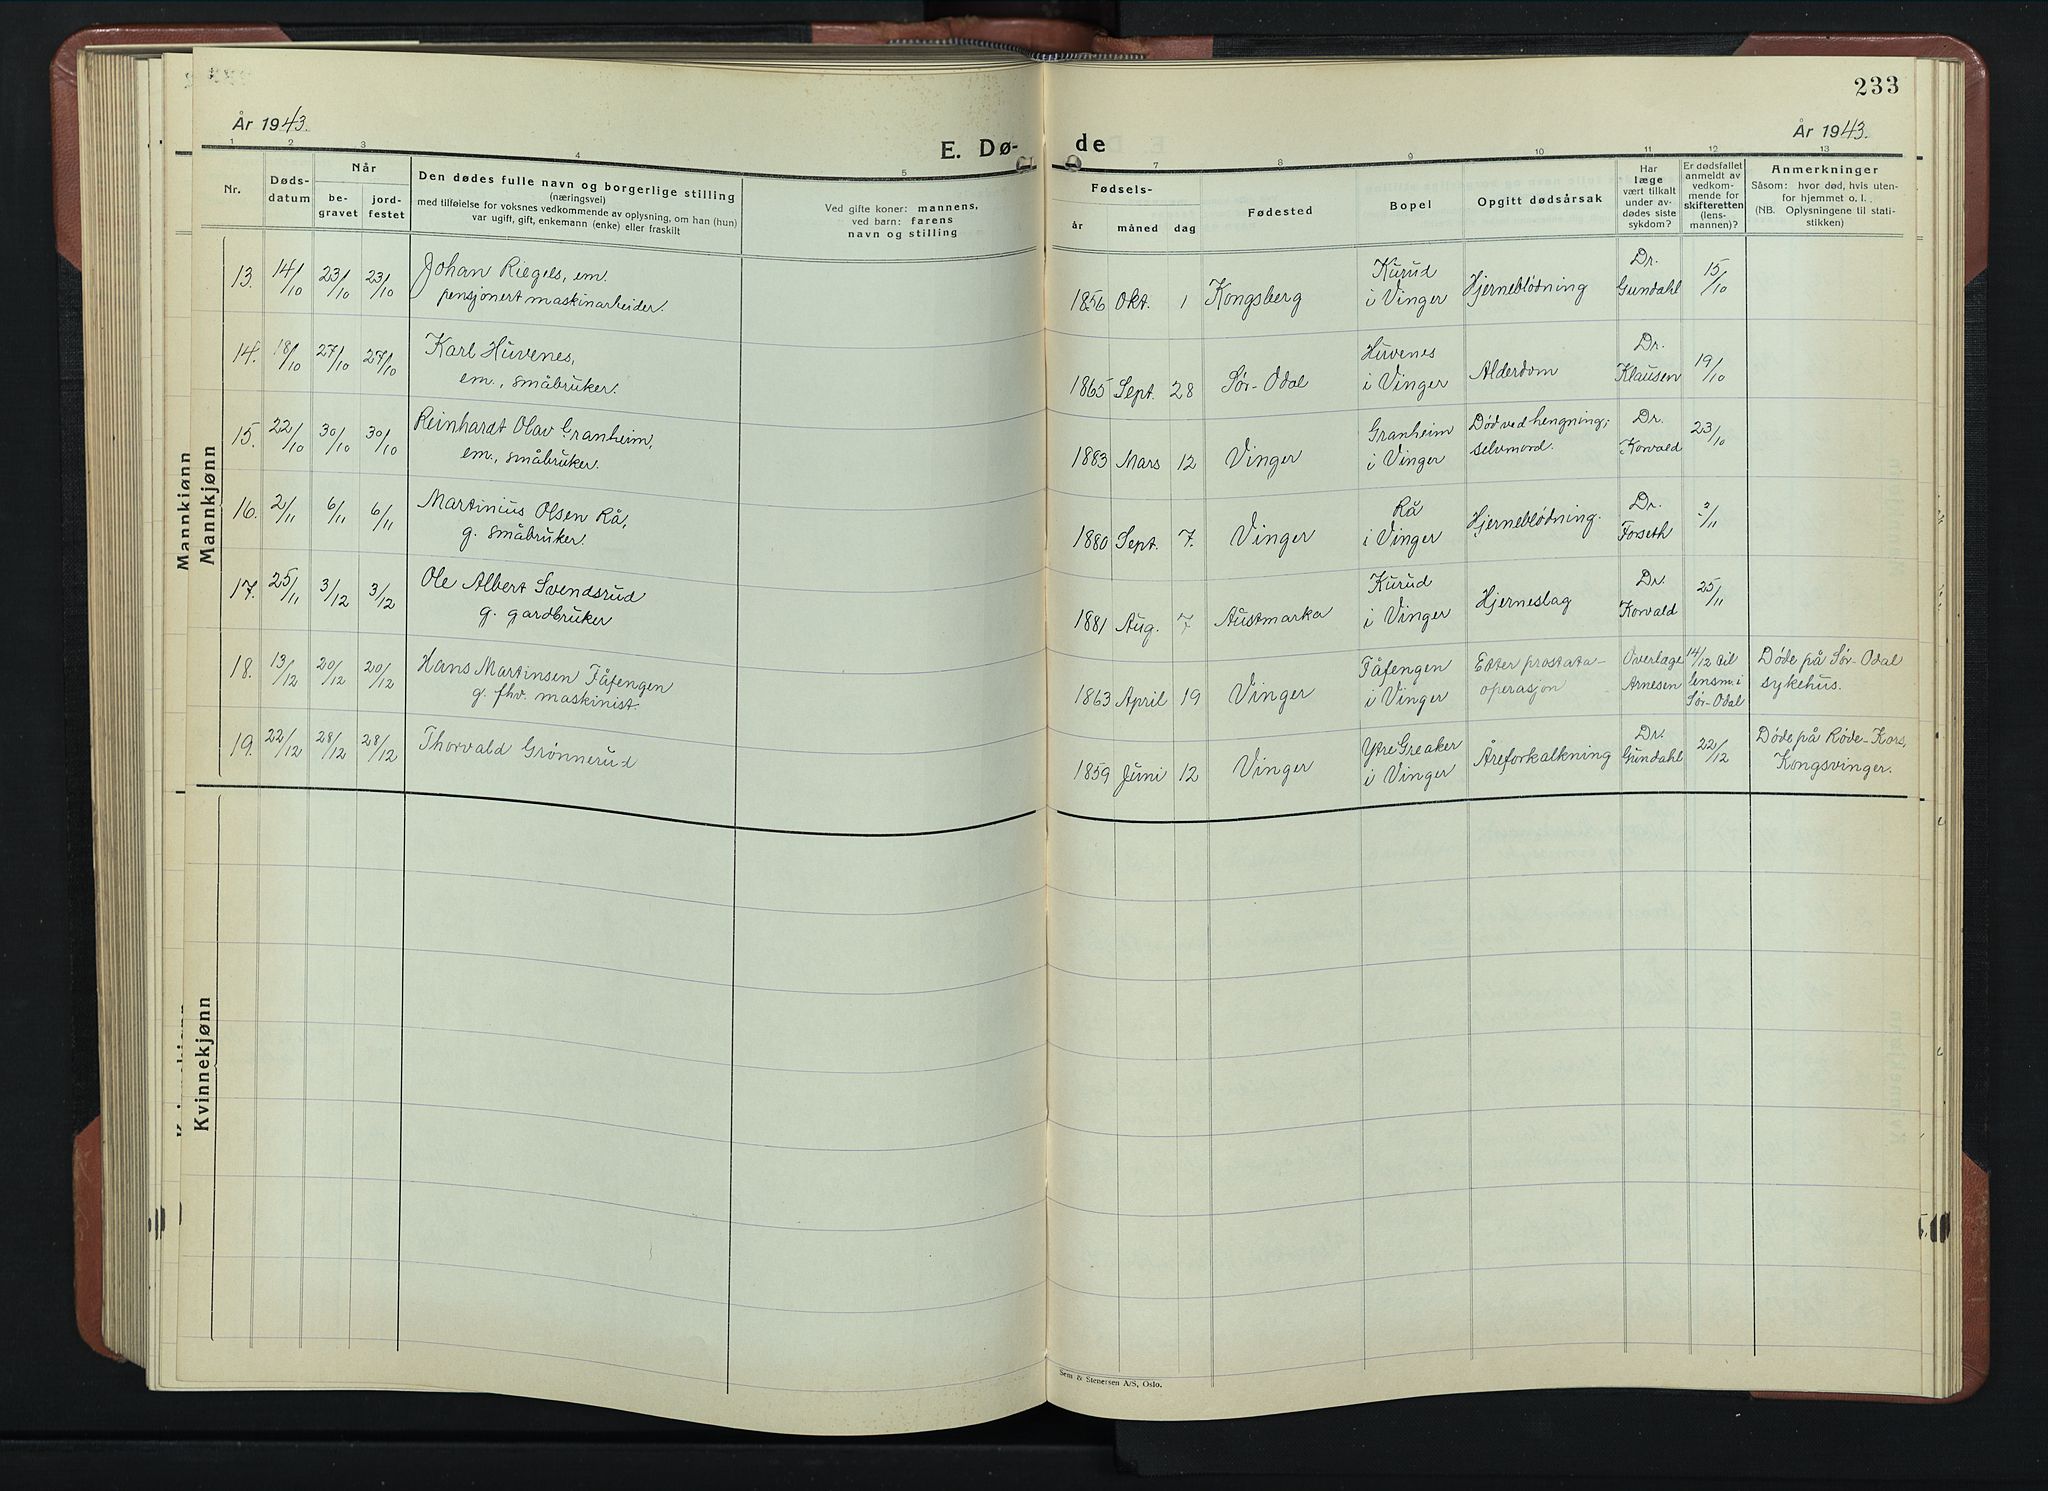 233
År 1943.
År 1943.
E. Dø-
de
1 2 3 4 5
7 8 9 10 11 12 13
Nr.
Døds-
datum
Når
be-
gravet
jord-
festet
Den dødes fulle navn og borgerlige stilling
(næringsvei)
med tilføielse for voksnes vedkommende av oplysning, om han (hun)
var ugift, gift, enkemann (enke) eller fraskilt
Ved gifte koner: mannens,
ved barn: farens
navn og stilling
Fødsels-
år måned dag
Fødested
Bopel
Opgitt dødsårsak
Har
læge
vært tilkalt
under av-
dødes siste
sykdom?
Er dødsfallet
anmeldt av
vedkom-
mende for
skifteretten
(lens-
mannen)?
Anmerkninger
Såsom: hvor død, hvis uten-
for hjemmet o. l.
(NB. Oplysningene til stati-
stikken)
Mannkjønn
Mannkjønn
13. 14/10 23/10 23/10 Johan Riegels, em.
pensjonert maskinarbeider.
1856 Okt. 1 Kongsberg
Kurud
i Vinger
Hjerneblødning
Dr.
Gundahl
15/10
14. 18/10 27/10 27/10 Karl Huvenes,
em., småbruker.
1865 Sept. 28 Sør-Odal
Huvenes
i Vinger
Alderdom
Dr.
Klausen
19/10
15. 22/10 30/10 30/10 Reinhardt Olav Granheim,
em., småbruker.
1883 Mars 12 Vinger
Granheim
i Vinger
Død ved hengning;
selvmord.
Dr.
Korvald
23/10
16. 2/11 6/11 6/11 Martinius Olsen Rå,
g. småbruker.
1880 Sept. 7. Vinger
Rå
i Vinger
Hjerneblødning.
Dr.
Forseth
2/11
17. 25/11 3/12 3/12 Ole Albert Svendsrud
g. gardbruker
1881 Aug. 7 Austmarka
Kurud
i Vinger
Hjerneslag
Dr.
Korvald
25/11
18. 13/12 20/12 20/12 Hans Martinsen Fåfengen
g. fhv. maskinist.
1863 April 19 Vinger
Fåfengen
i Vinger
Etter prostata-
operasjon
Overlæge
Arnesen
14/12 til
lensm. i
Sør-Odal
Døde på Sør-Odal
sykehus.
19. 22/12 28/12 28/12 Thorvald Grønnerud
1859 Juni 12 Vinger
Ytre Greaker
i Vinger
Åreforkalkning
Dr.
Gundahl
22/12
Døde på Røde-Kors,
Kongsvinger.
Kvinnekjønn
Sem & Stenersen A/S, Oslo.